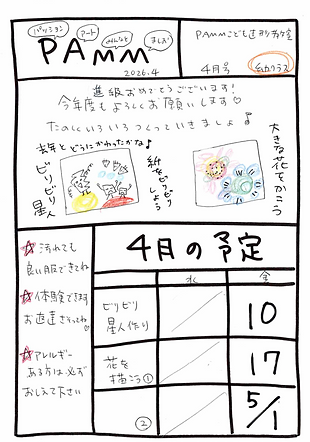 パッション アート みんなと ましか
PAmm
2026.4
PAMMこども造形教室
4月号
幼児クラス
進級おめでとうございます!
今年度もよろしくお願いします♡
たのしくいろいろつくっていきましょ♪
去年とどうにかわったかな♪
ビリビリ星人
紙をビリビリしよう
大きな花をかこう
☆汚れても
良い服できてね
☆体験できます
お友達さそってね♡
☆アレルギー
ある方は必ず
おしえて下さい
4月の予定
水 金
ビリビリ
星人作り 10
花を
描こう① 17
② 5/1